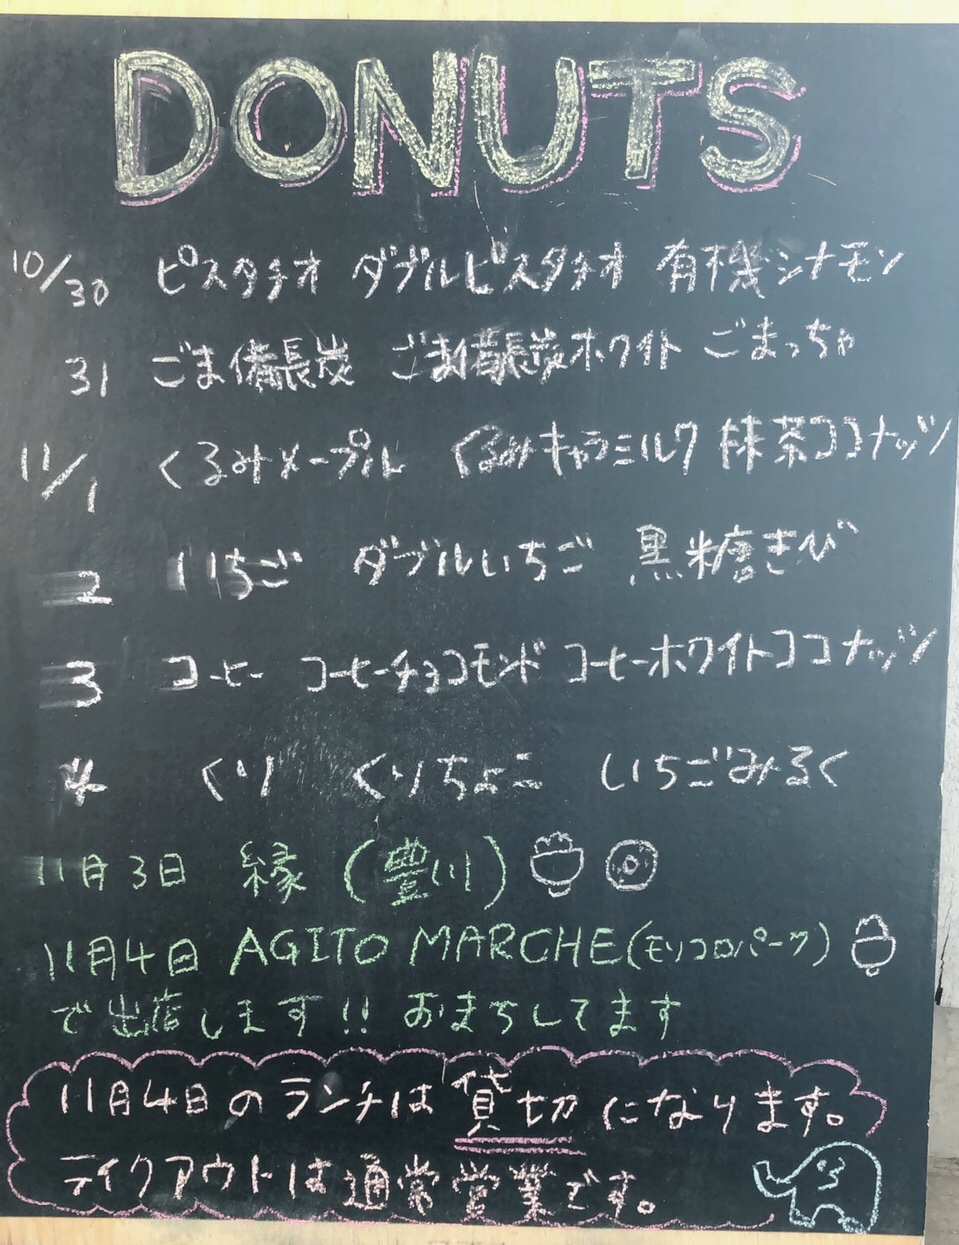 DONUTS
10/30 ピスタチオ ダブルピスタチオ 有機シナモン
31 ごま備長炭 ごま備長炭ホワイト ごまっちゃ
11/1 くるみメープル くるみキャラミルク 抹茶ココナッツ
2 いちご ダブルいちご 黒糖きび
3 コーヒー コーヒーチョコモンド コーヒーホワイトココナッツ
4 くり くりちょこ いちごみるく
11月3日 縁 (豊川)
11月4日 AGITO MARCHE(モリコロパーク)
で出店します!! おまちしてます
11月4日のランチは貸切になります。
テイクアウトは通常営業です。